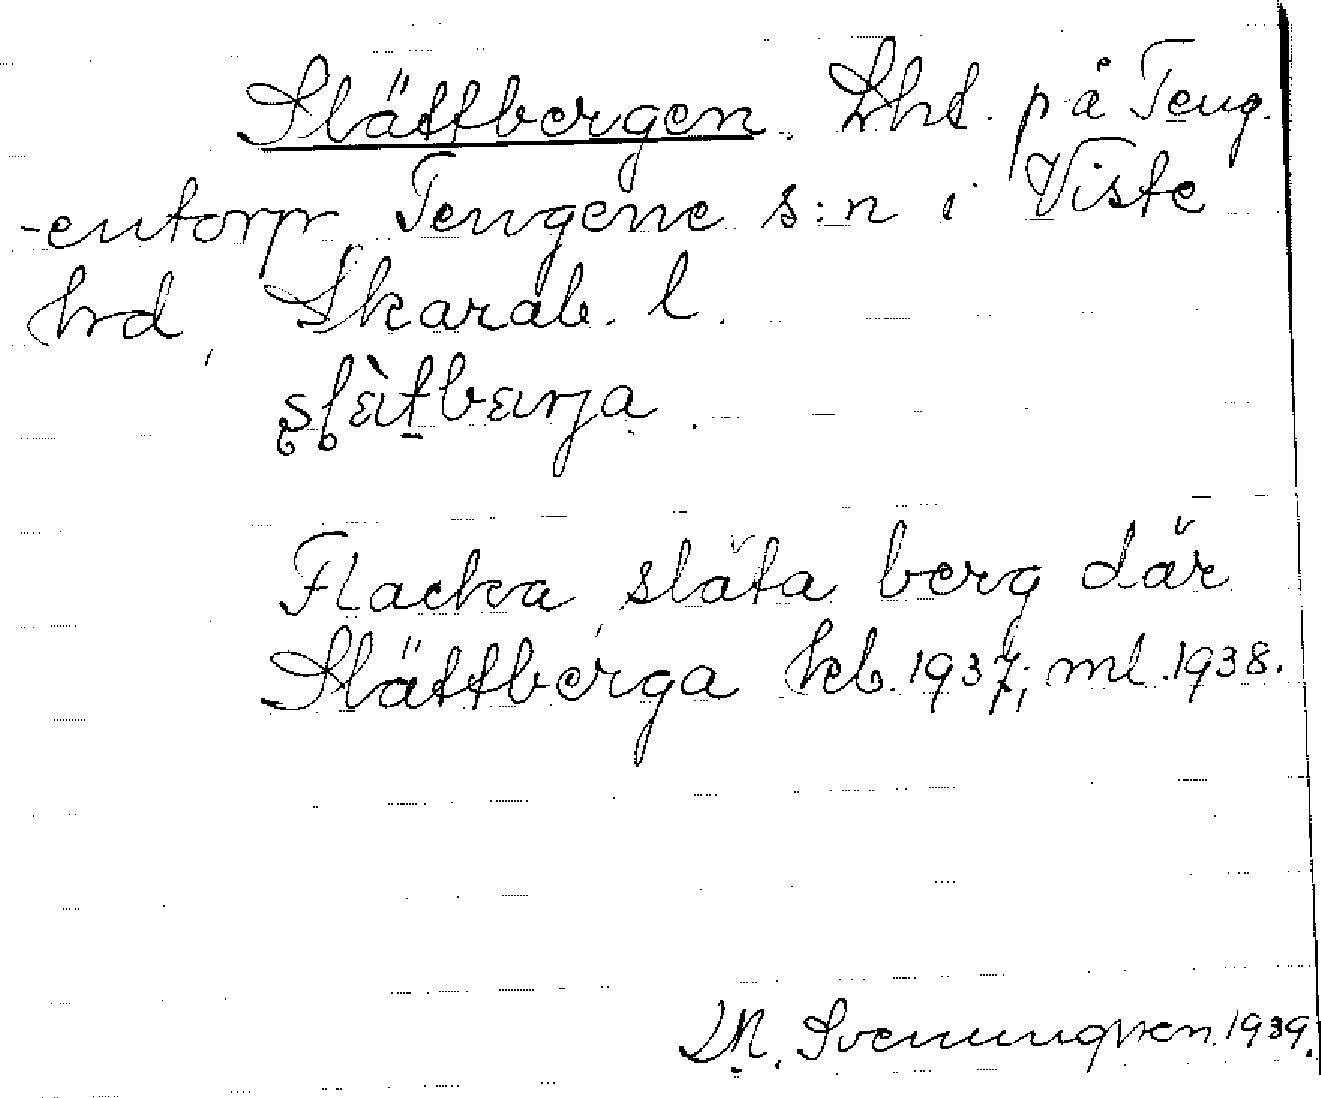 Slättbergen. Lht. på Teng-
-entorp, Tengene s:n i Viste
hrd, Skarab. l.
Flacka, släta berg där
Slättberga kb. 1937; ml. 1938.
D.N. Svenungsson. 1939.